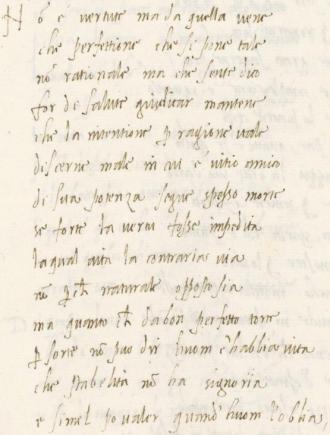 Nō è vertute ma da quella vene
che perfettione che si pone tale
nō rationale ma che sente dico
for de salute giudicar mantene
che la intentione ꝑ ragione vale
discerne male in cui è vitio amico
di sua potenza segue spesso morte
se forte la vertù fosse impedita
la qual aita la contraria via
nō ꝑ ch' naturale opposto sia
ma quanto ch' da bon perfetto torte
ꝑ sorte nō può dir huom c'habbia vita
che stabelita nō ha signoria
e simel po valer quand' huom l'oblia